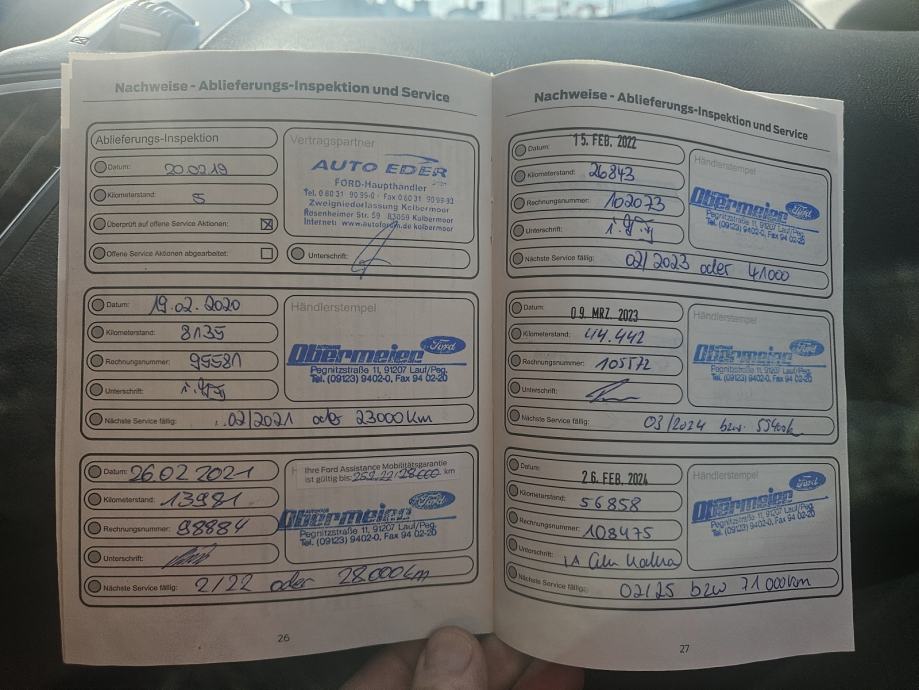 Nachweise - Ablieferungs-Inspektion und Service
Ablieferungs-Inspektion
Datum: 20.02.19
Kilometerstand: 5
Überprüft auf offene Service Aktionen:
Offene Service Aktionen abgearbeitet:
Vertragspartner
AUTO EDER
FORD-Haupthändler
Tel. 0 80 31 90 95-0 · Fax 0 80 31 90 95-93
Zweigniederlassung Kolbermoor
Rosenheimer Str. 59 83059 Kolbermoor
Internet:
Unterschrift:
Datum: 19.02.2020
Kilometerstand: 8135
Rechnungsnummer: 95581
Unterschrift:
Nächste Service fällig: 02/2021 oder 23000 km
Händlerstempel
Obermeier Ford
Pegnitzstraße 11, 91207 Lauf/Peg.
Tel. (09123) 9402-0, Fax 94 02-20
Datum: 26.02.2021
Kilometerstand: 13981
Rechnungsnummer: 98884
Unterschrift:
Nächste Service fällig: 2/22 oder 28.000 km
Ihre Ford Assistance Mobilitätsgarantie
ist gültig bis: km
Obermeier Ford
Pegnitzstraße 11, 91207 Lauf/Peg.
Tel. (09123) 9402-0, Fax 94 02-20
26
Nachweise - Ablieferungs-Inspektion und Service
Datum: 15. FEB. 2022
Kilometerstand: 26843
Rechnungsnummer: 102073
Unterschrift:
Nächste Service fällig: 02/2023 oder 41000
Händlerstempel
Obermeier Ford
Pegnitzstraße 11, 91207 Lauf/Peg.
Tel. (09123) 9402-0, Fax 94 02-20
Datum: 09. MRZ. 2023
Kilometerstand: 44.442
Rechnungsnummer: 105572
Unterschrift:
Nächste Service fällig: 03/2024 bzw.
Händlerstempel
Obermeier Ford
Pegnitzstraße 11, 91207 Lauf/Peg.
Tel. (09123) 9402-0, Fax 94 02-20
Datum: 26. FEB. 2024
Kilometerstand: 56858
Rechnungsnummer: 108475
Unterschrift:
Nächste Service fällig: 02/25 bzw 71000km
Händlerstempel
Obermeier Ford
Pegnitzstraße 11, 91207 Lauf/Peg.
Tel. (09123) 9402-0, Fax 94 02-20
27